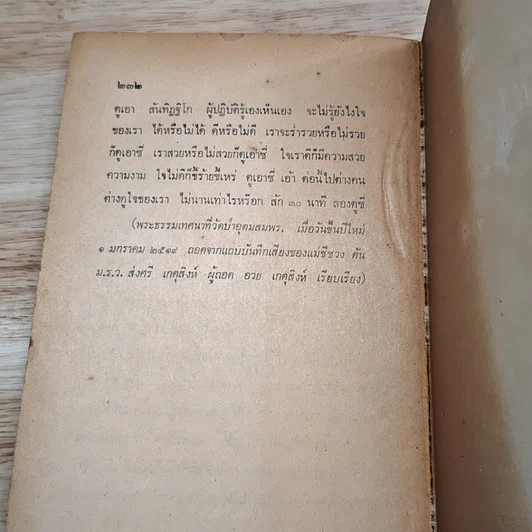 ๒๓๒
ดูเอา สันทิฏฐิโก ผู้ปฏิบัติรู้เองเห็นเอง จะไม่รู้ยังไงใจ
ของเรา ได้หรือไม่ได้ ดีหรือไม่ดี เราจะร่ำรวยหรือไม่รวย
ก็ดูเอาซี่ เราสวยหรือไม่สวยก็ดูเอาซี่ ใจเราดีก็มีความสวย
ความงาม ใจไม่ดีก็ขี้ร้ายขี้เหร่ ดูเอาซี่ เอ้า ต่อนี้ไปต่างคน
ต่างดูใจของเรา ไม่นานเท่าไรหร๊อก สัก ๓๐ นาที ลองดูซี่
(พระธรรมเทศนาที่วัดป่าอุดมสมพร, เมื่อวันขึ้นปีใหม่
๑ มกราคม ๒๕๑๙ ถอดจากแถบบันทึกเสียงของแม่ชีชวง ตัน
ม.ร.ว. ส่งศรี เกตุสิงห์ ผู้ถอด อวย เกตุสิงห์ เรียบเรียง)